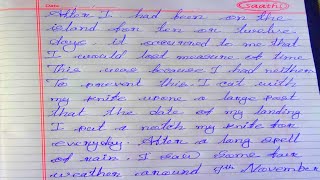 Saathi
After I had been on the
island for ten or twelve
days. it occurred to me that
I would lost measure of time
This was because I had neither
To prevent this. I cut with
my knife upone a large post
that the date of my landing
I put a notch my knife for
everyday. After a long spell
of rain. I saw some fair
weather around 9th November